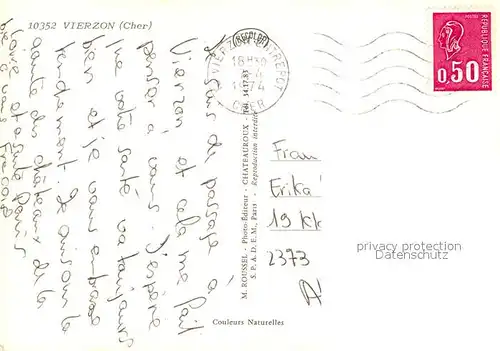 10352 VIERZON (Cher)
Je suis de passage à
Vierzon et cela me fait
penser à vous. J'espère
que votre santé va toujours
bien et je vous embrasse
tendrement. Je suis sur la
route des châteaux de la
Loire et
à vous
M. ROUSSEL - Photo-Éditeur - CHATEAUROUX - Tél. 34.17.83
S.P.A.D.E.M., Paris - Reproduction interdite
(RECOLOR)
Couleurs Naturelles
VIERZON ENTREPOT
18 H
CHER
POSTES
REPUBLIQUE FRANÇAISE
0,50
Frau
Erika
19
2373
A
privacy protection
Datenschutz